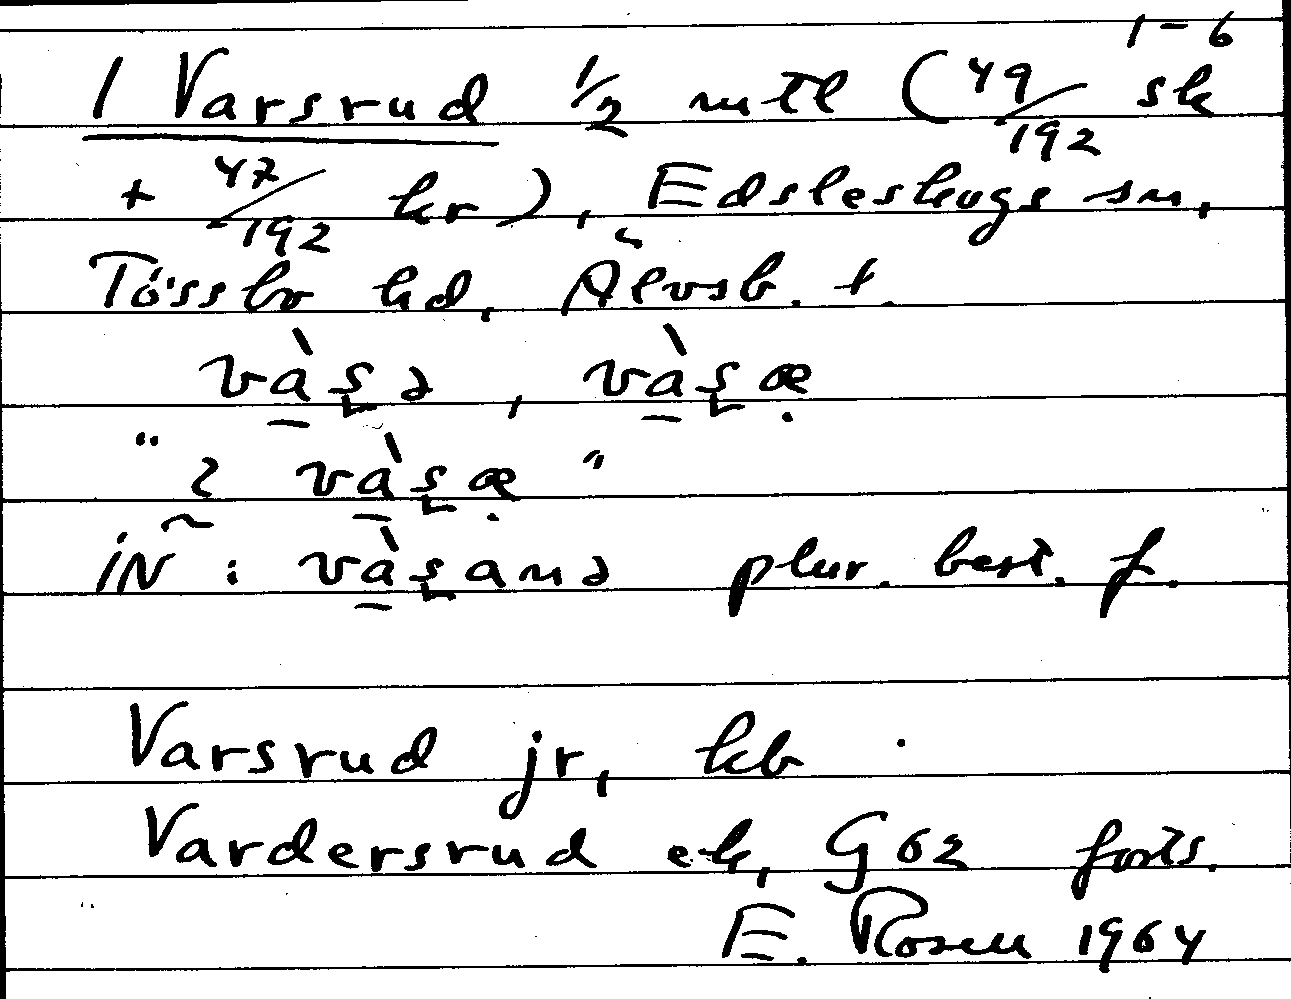 1-6
1 Varsrud 1/2 mtl (49/192 sk
+ 47/192 kr), Edsleskogs sn,
Tössbo hd, Älvsb. l.
và̱ʂə, và̱ʂæ̣
" 2 và̱ʂæ̣ "
iN : và̱ʂanə plur. best. f.
Varsrud jr, kb
Vardersrud ek, G62 forts.
E. Rosell 1964